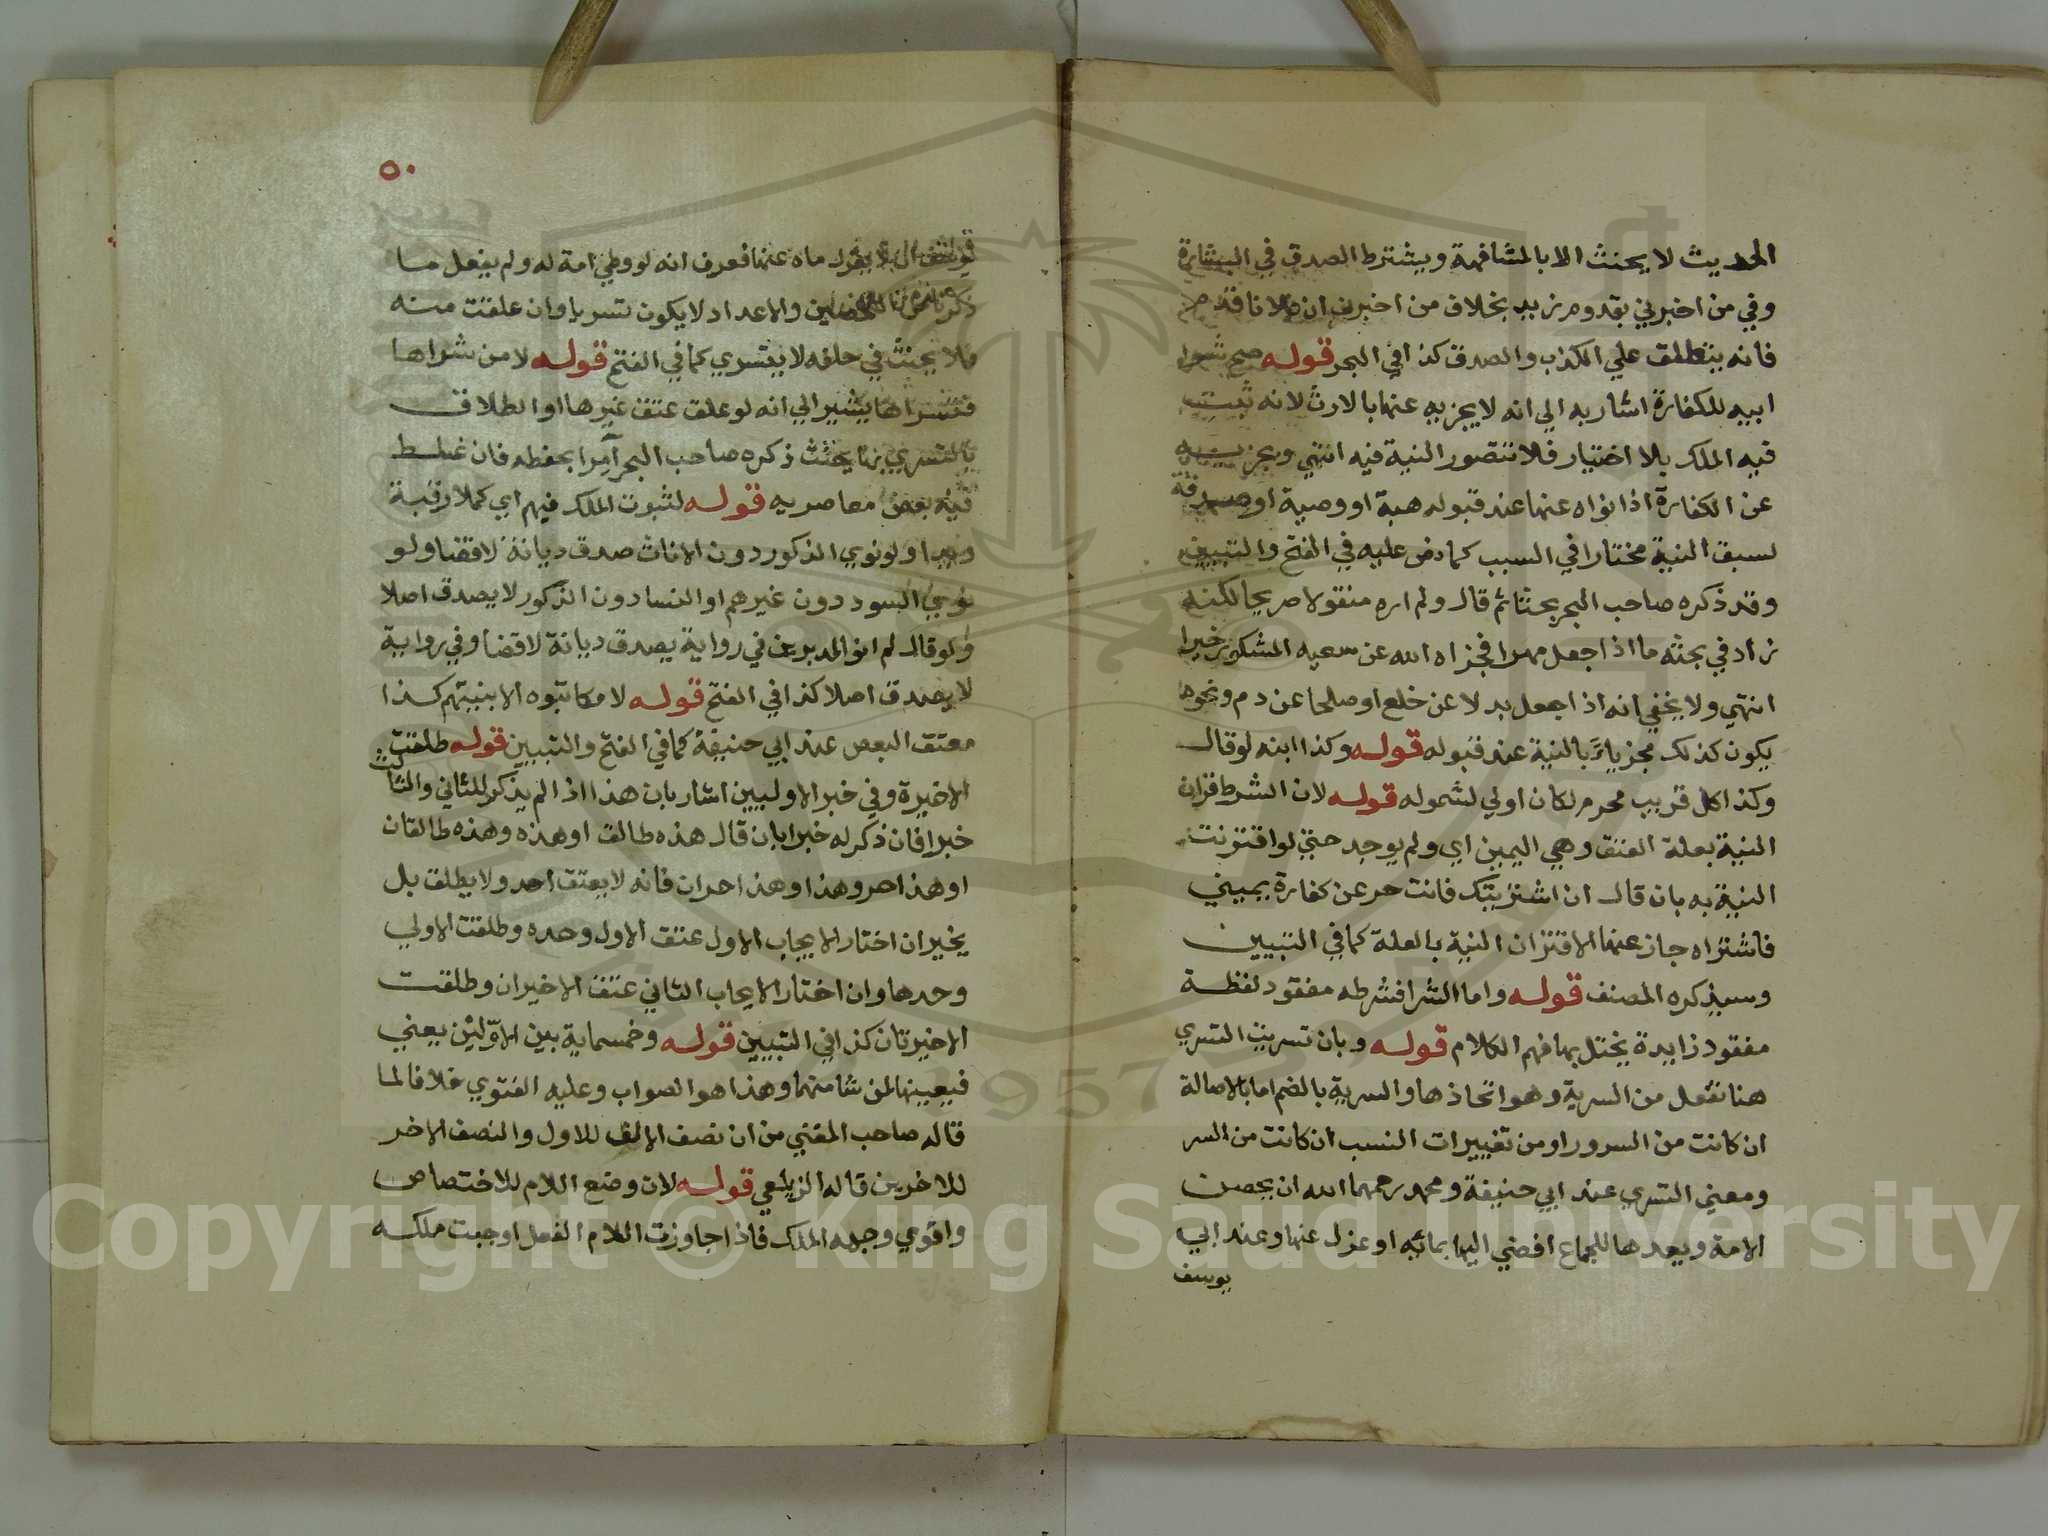 الحديث لا يحنث الا بالمشافهة ويشترط الصدق في البشارة
وفي من اخبرني بقدوم زيد بخلاف من اخبرني ان فلانا قدم
فانه ينطلق علي الكذب والصدق كذا في البحر قوله صح شرا
ابيه للكفارة اشار به الي انه لا يجزيه عنها بالارث لانه ثبت
فيه الملك بلا اختيار فلا تتصور النية فيه انتهي ويجزيه
عن الكفارة اذا نواه عنها عند قبوله هبة او وصية او صدقة
لسبق النية مختارا في السبب كما نص عليه في الفتح والتبيين
وقد ذكره صاحب البحر بحثا ثم قال ولم اره منقولا صريحا لكنه
زاد في بحثه ما اذا جعل مهرا فجزاه الله عن سعيه المشكور خيرا
انتهي ولا يخفي انه اذا جعل بدلا عن خلع او صلحا عن دم ونحوها
يكون كذلك مجزياً بالنية عند قبوله قوله وكذا ابنه لو قال
وكذا كل قريب محرم لكان اولي لشموله قوله لان الشرط قران
النية بعلة العتق وهي اليمين اي ولم يوجد حتي لو اقترنت
النية به بان قال ان اشتريتك فانت حر عن كفارة يميني
فاشتراه جاز عنها لاقتران النية بالعلة كما في التبيين
وسيذكره المصنف قوله واما الشرا فشرطه مفقود لفظة
مفقود زايدة يختل بها فهم الكلام قوله وبان تسريت التسري
هنا تفعل من السرية وهو اتخاذها والسرية بالضم اما بالاصالة
ان كانت من السرور او من تغييرات النسب ان كانت من السر
ومعني التسري عند ابي حنيفة ومحمد رحمهما الله ان يحصن
الامة ويعدها للجماع افضي اليها بمائه او عزل عنها وعند ابي
يوسف
٥٠
ان لا يعزل ماه عنها فعرف انه لو وطي امة له ولم يفعل ما
ذكرناه من التحصين والاعداد لا يكون تسريا وان علقت منه
فلا يحنث في حلفه لا يتسري كما في الفتح قوله لا من شراها
فتسراها يشير الي انه لو علق عتق غيرها او الطلاق
بالتسري بها يحنث ذكره صاحب البحر آمرا بحفظه فان غلط
فيه بعض معاصريه قوله لثبوت الملك فيهم اي كملا رقبة
ويدا ولو نوي الذكور دون الاناث صدق ديانة لا قضا ولو
نوي السود دون غيرهم او النسا دون الذكور لا يصدق اصلا
ولو قال لم انو المدبرين في رواية يصدق ديانة لا قضا وفي رواية
لا يصدق اصلا كذا في الفتح قوله لا مكاتبوه الا بنيتهم كذا
معتق البعض عند ابي حنيفة كما في الفتح والتبيين قوله طلقت
الاخيرة وفي خبر الاوليين اشار بان هذا اذا لم يذكر للثاني والثالث
خبرا فان ذكر له خبرا بان قال هذه طالق او هذه وهذه طالقان
او هذا حر وهذا او هذا حران فانه لا يعتق احد ولا يطلق بل
يخير ان اختار الايجاب الاول عتق الاول وحده وطلقت الاولي
وحدها وان اختار الايجاب الثاني عتق الاخيران وطلقت
الاخيرتان كذا في التبيين قوله وخمسماية بين الاوّلين يعني
فيعيينها لمن شا منهما وهذا هو الصواب وعليه الفتوي خلافا لما
قاله صاحب المغني من ان نصف الالف للاول والنصف الاخر
للاخرين قاله الزيلعي قوله لان وضع اللام للاختصاص
واقوي وجهه الملك فاذا جاوزت اللام الفعل اوجبت ملكه
Copyright © King Saud University
1957